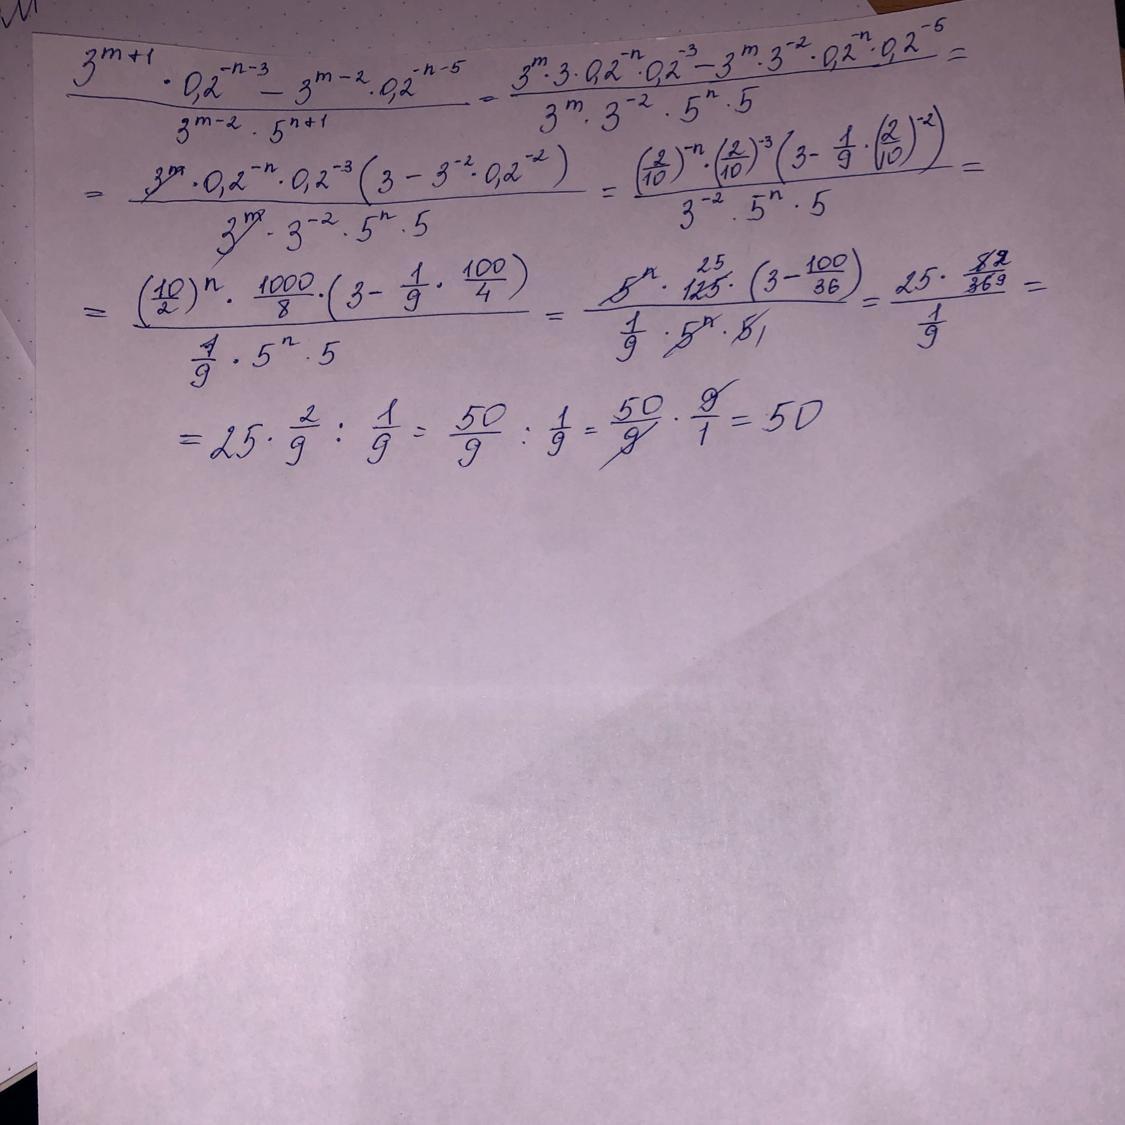 \frac{3^{m+1} \cdot 0,2^{-n-3} - 3^{m-2} \cdot 0,2^{-n-5}}{3^{m-2} \cdot 5^{n+1}} = \frac{3^{m} \cdot 3 \cdot 0,2^{-n} \cdot 0,2^{-3} - 3^{m} \cdot 3^{-2} \cdot 0,2^{-n} \cdot 0,2^{-5}}{3^{m} \cdot 3^{-2} \cdot 5^{n} \cdot 5} =
= \frac{3^{m} \cdot 0,2^{-n} \cdot 0,2^{-3} (3 - 3^{-2} \cdot 0,2^{-2})}{3^{m} \cdot 3^{-2} \cdot 5^{n} \cdot 5} = \frac{(\frac{2}{10})^{-n} \cdot (\frac{2}{10})^{-3} (3 - \frac{1}{9} \cdot (\frac{2}{10})^{-2})}{3^{-2} \cdot 5^{n} \cdot 5} =
= \frac{(\frac{10}{2})^{n} \cdot \frac{1000}{8} \cdot (3 - \frac{1}{9} \cdot \frac{100}{4})}{\frac{1}{9} \cdot 5^{n} \cdot 5} = \frac{5^{n} \cdot 125^{25} \cdot (3 - \frac{100}{36})}{\frac{1}{9} \cdot 5^{n} \cdot 5_{1}} = \frac{25 \cdot \frac{8 2}{36 9}}{\frac{1}{9}} =
= 25 \cdot \frac{2}{9} : \frac{1}{9} = \frac{50}{9} : \frac{1}{9} = \frac{50}{9} \cdot \frac{9}{1} = 50